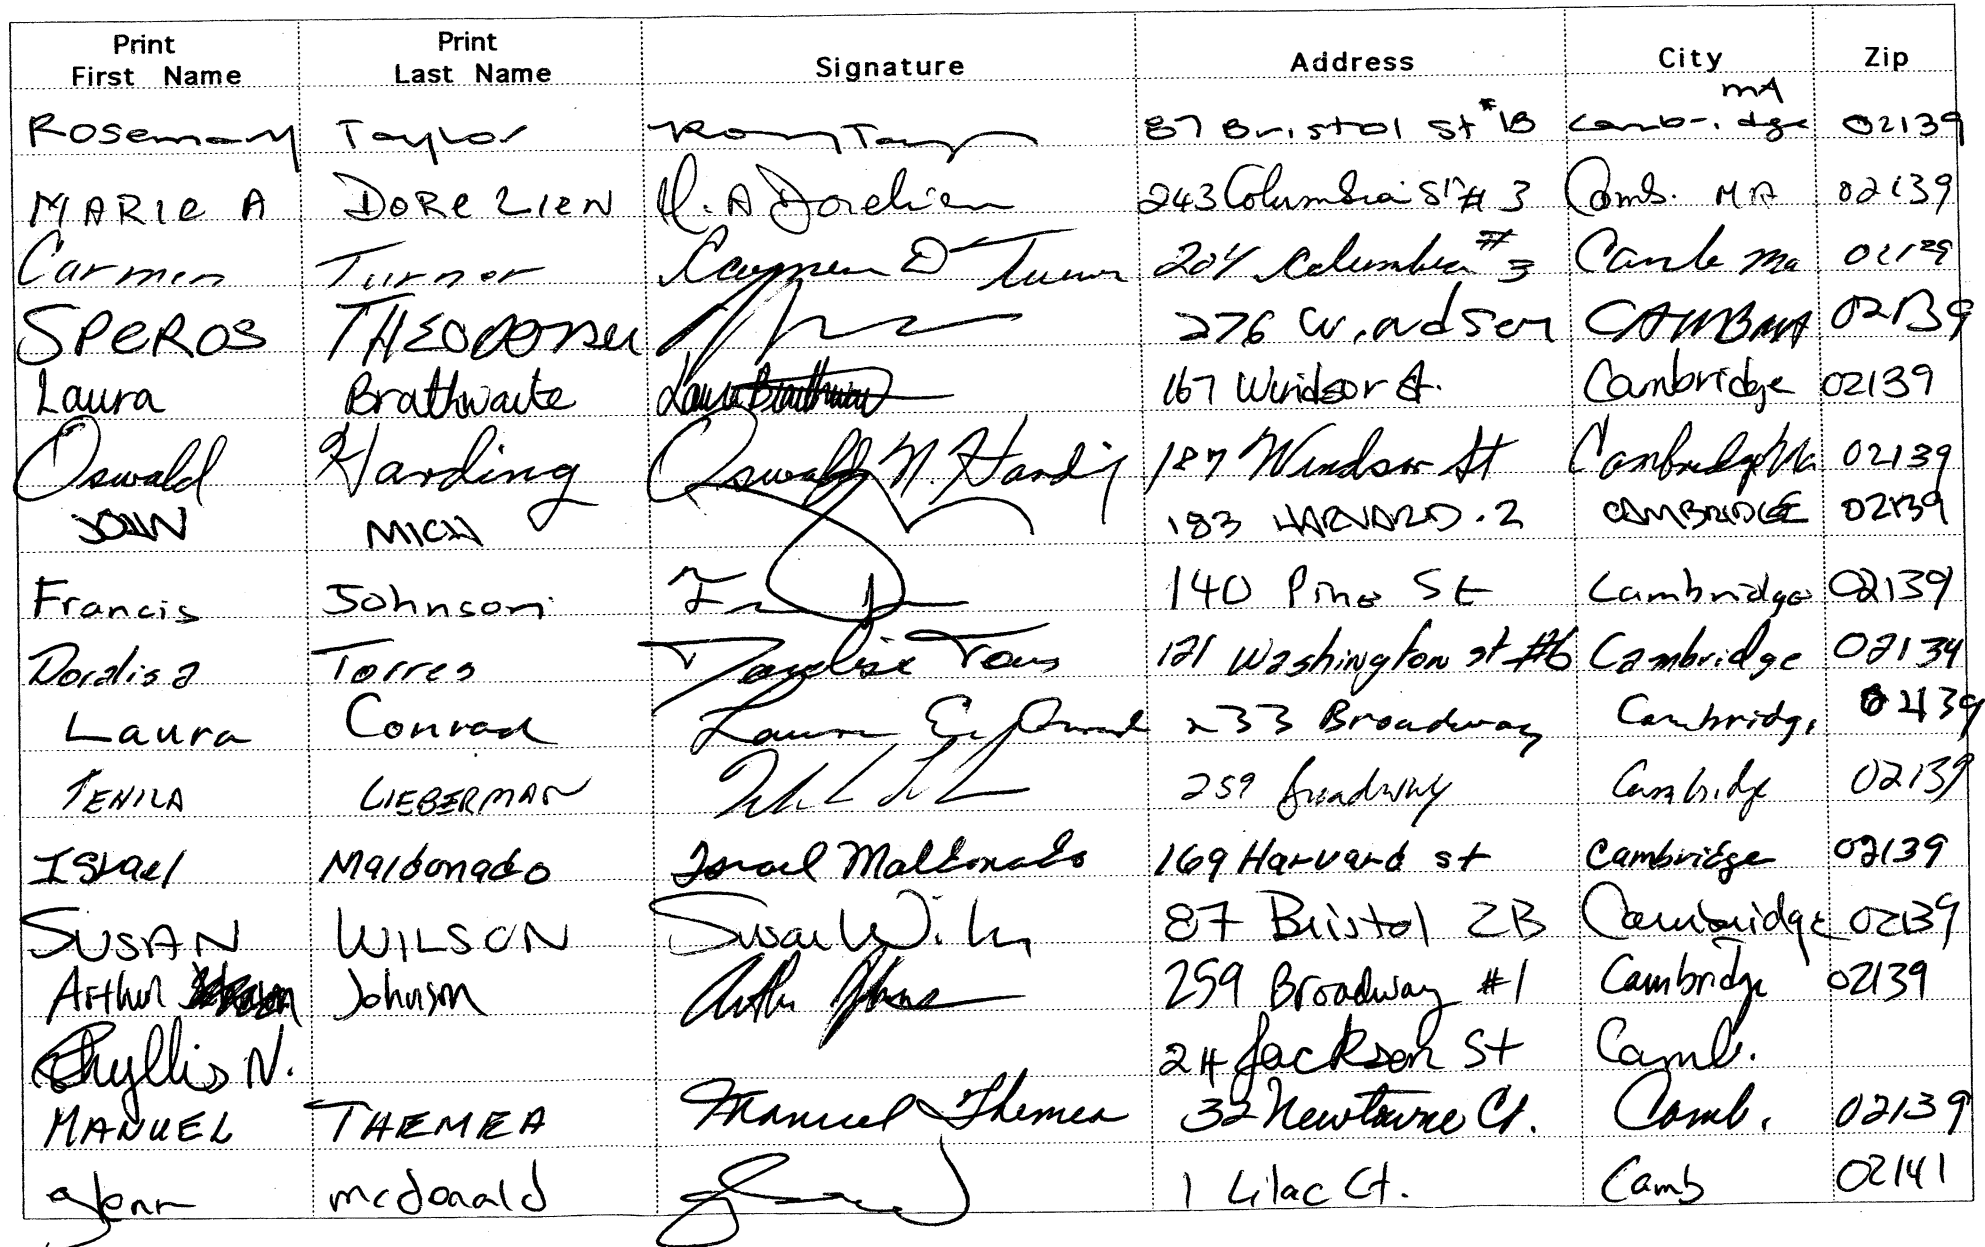 Print First Name Print Last Name Signature Address City Zip
Rosemary Taylor 87 Bristol St #1B Cambridge MA 02139
MARIE A DORELIEN M. A Dorelien 243 Columbia St # 3 Camb. MA 02139
Carmen Turner Carmen D Turner 204 Columbia #3 Camb Ma 02139
SPEROS 276 Windsor CAMB MA 02139
Laura Brathwaite Laura Brathwaite 167 Windsor St. Cambridge 02139
Oswald Harding Oswald N. Harding 187 Windsor St Cambridge Ma 02139
JOHN MICH 183 HARVARD . 2 CAMBRIDGE 02139
Francis Johnson 140 Pine St Cambridge 02139
Doralisa Torres Doralisa Torres 121 Washington st #6 Cambridge 02139
Laura Conrad Laura E. Conrad 233 Broadway Cambridge 02139
LIEBERMAN 259 Broadway Cambridge 02139
Israel Maldonado Israel Maldonado 169 Harvard st Cambridge 02139
SUSAN WILSON Susan Wilson 87 Bristol 2B Cambridge 02139
Arthur Johnson Arthur Johnson 259 Broadway #1 Cambridge 02139
Phyllis N. 24 Jackson St Camb.
MANUEL THEMEA Manuel Themea 32 Newtowne Ct. Camb. 02139
glenn mcdonald 1 Lilac Ct. Camb 02141